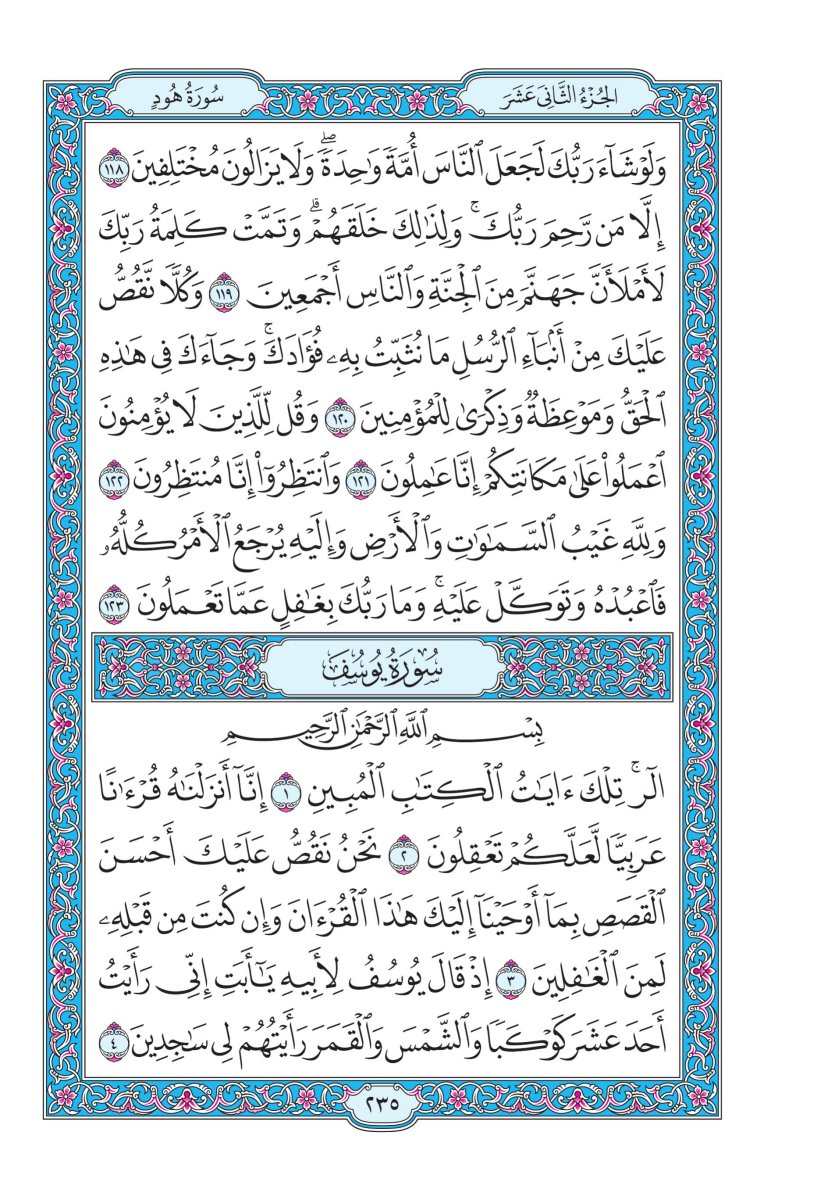 الجُزْءُ الثَّانِى عَشَرَ
سُورَةُ هُودٍ
وَلَوْ شَآءَ رَبُّكَ لَجَعَلَ ٱلنَّاسَ أُمَّةٗ وَٰحِدَةٗۖ وَلَا يَزَالُونَ مُخْتَلِفِينَ ١١٨
إِلَّا مَن رَّحِمَ رَبُّكَۚ وَلِذَٰلِكَ خَلَقَهُمْۗ وَتَمَّتْ كَلِمَةُ رَبِّكَ
لَأَمْلَأَنَّ جَهَنَّمَ مِنَ ٱلْجِنَّةِ وَٱلنَّاسِ أَجْمَعِينَ ١١٩ وَكُلّٗا نَّقُصُّ
عَلَيْكَ مِنْ أَنۢبَآءِ ٱلرُّسُلِ مَا نُثَبِّتُ بِهِۦ فُؤَادَكَۚ وَجَآءَكَ فِي هَٰذِهِ
ٱلْحَقُّ وَمَوْعِظَةٞ وَذِكْرَىٰ لِلْمُؤْمِنِينَ ١٢٠ وَقُل لِّلَّذِينَ لَا يُؤْمِنُونَ
ٱعْمَلُوا۟ عَلَىٰ مَكَانَتِكُمْ إِنَّا عَٰمِلُونَ ١٢١ وَٱنتَظِرُوٓا۟ إِنَّا مُنتَظِرُونَ ١٢٢
وَلِلَّهِ غَيْبُ ٱلسَّمَٰوَٰتِ وَٱلْأَرْضِ وَإِلَيْهِ يُرْجَعُ ٱلْأَمْرُ كُلُّهُۥ
فَٱعْبُدْهُ وَتَوَكَّلْ عَلَيْهِۚ وَمَا رَبُّكَ بِغَٰفِلٍ عَمَّا تَعْمَلُونَ ١٢٣
سُورَةُ يُوسُفَ
بِسْمِ ٱللَّهِ ٱلرَّحْمَٰنِ ٱلرَّحِيمِ
الٓرۚ تِلْكَ ءَايَٰتُ ٱلْكِتَٰبِ ٱلْمُبِينِ ١ إِنَّآ أَنزَلْنَٰهُ قُرْءَٰنًا
عَرَبِيّٗا لَّعَلَّكُمْ تَعْقِلُونَ ٢ نَحْنُ نَقُصُّ عَلَيْكَ أَحْسَنَ
ٱلْقَصَصِ بِمَآ أَوْحَيْنَآ إِلَيْكَ هَٰذَا ٱلْقُرْءَانَ وَإِن كُنتَ مِن قَبْلِهِۦ
لَمِنَ ٱلْغَٰفِلِينَ ٣ إِذْ قَالَ يُوسُفُ لِأَبِيهِ يَٰٓأَبَتِ إِنِّي رَأَيْتُ
أَحَدَ عَشَرَ كَوْكَبٗا وَٱلشَّمْسَ وَٱلْقَمَرَ رَأَيْتُهُمْ لِي سَٰجِدِينَ ٤
٢٣٥